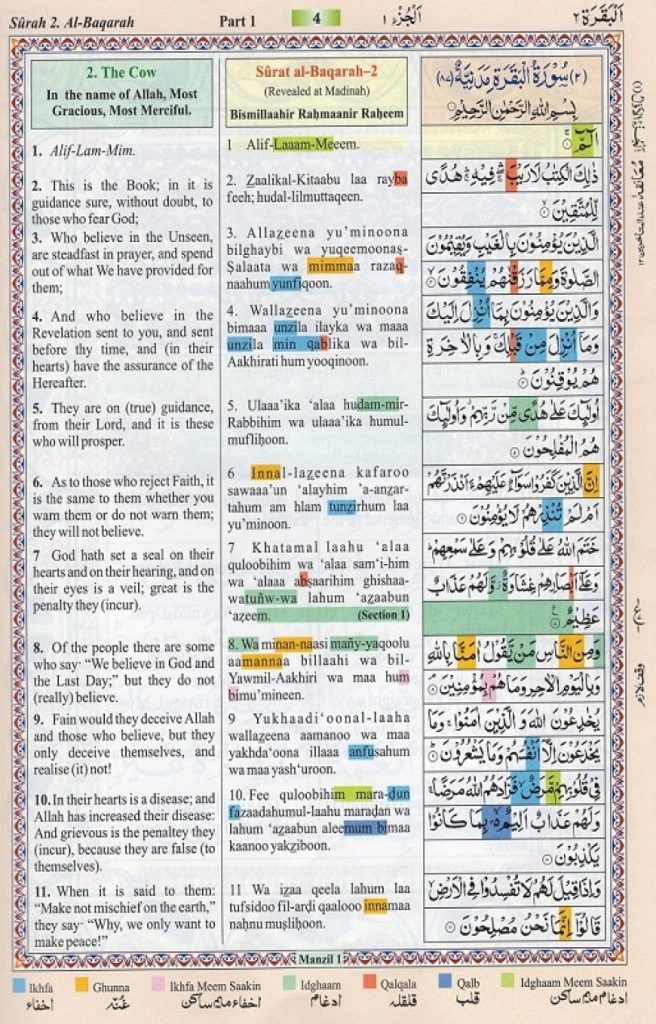 Sûrah 2. Al-Baqarah Part 1 4 اَلْجُزْء ١ اَلْبَقَرَة ٢
2. The Cow
In the name of Allah, Most
Gracious, Most Merciful.
1. Alif-Lam-Mim.
2. This is the Book; in it is
guidance sure, without doubt, to
those who fear God;
3. Who believe in the Unseen,
are steadfast in prayer, and spend
out of what We have provided for
them;
4. And who believe in the
Revelation sent to you, and sent
before thy time, and (in their
hearts) have the assurance of the
Hereafter.
5. They are on (true) guidance,
from their Lord, and it is these
who will prosper.
6. As to those who reject Faith, it
is the same to them whether you
warn them or do not warn them;
they will not believe.
7 God hath set a seal on their
hearts and on their hearing, and on
their eyes is a veil; great is the
penalty they (incur).
8. Of the people there are some
who say· “We believe in God and
the Last Day;” but they do not
(really) believe.
9. Fain would they deceive Allah
and those who believe, but they
only deceive themselves, and
realise (it) not!
10. In their hearts is a disease; and
Allah has increased their disease:
And grievous is the penaltey they
(incur), because they are false (to
themselves).
11. When it is said to them:
“Make not mischief on the earth,”
they say· “Why, we only want to
make peace!”
Sûrat al-Baqarah–2
(Revealed at Madinah)
Bismillaahir Raḥmaanir Raḥeem
1 Alif-Laaam-Meeem.
2. Zaalikal-Kitaabu laa rayba
feeh; hudal-lilmuttaqeen.
3. Allazeena yu’minoona
bilghaybi wa yuqeemoonaṣ-
Ṣalaata wa mimmaa razaq-
naahum yunfiqoon.
4. Wallazeena yu’minoona
bimaaa unzila ilayka wa maaa
unzila min qablika wa bil-
Aakhirati hum yooqinoon.
5. Ulaaa’ika ‘alaa hudam-mir-
Rabbihim wa ulaaa’ika humul-
mufliḥoon.
6 Innal-lazeena kafaroo
sawaaa’un ‘alayhim ’a-anzar-
tahum am hlam tunzirhum laa
yu’minoon.
7 Khatamal laahu ‘alaa
quloobihim wa ‘alaa sam‘i-him
wa ‘alaaa abṣaarihim ghishaa-
watuñw-wa lahum ‘azaabun
‘azeem. (Section 1)
8. Wa minan-naasi mañy-yaqoolu
aamannaa billaahi wa bil-
Yawmil-Aakhiri wa maa hum
bimu’mineen.
9 Yukhaadi‘oonal-laaha
wallazeena aamanoo wa maa
yakhda‘oona illaaa anfusahum
wa maa yash‘uroon.
10. Fee quloobihim mara-ḍun
fazaadahumul-laahu maraḍan wa
lahum ‘azaabun aleemum bimaa
kaanoo yakziboon.
11 Wa izaa qeela lahum laa
tufsidoo fil-arḍi qaalooo innamaa
naḥnu muṣliḥoon.
(٢) سُوْرَةُ الْبَقَرَةِ مَدَنِيَّةٌ (٨٧)
بِسْمِ اللهِ الرَّحْمٰنِ الرَّحِيْمِ
الٓمّٓ ۝١
ذٰلِكَ الْكِتٰبُ لَا رَيْبَ ۛ فِيْهِ ۛ هُدًى
لِّلْمُتَّقِيْنَ ۝٢
الَّذِيْنَ يُؤْمِنُوْنَ بِالْغَيْبِ وَيُقِيْمُوْنَ
الصَّلٰوةَ وَمِمَّا رَزَقْنٰهُمْ يُنْفِقُوْنَ ۝٣
وَالَّذِيْنَ يُؤْمِنُوْنَ بِمَآ اُنْزِلَ اِلَيْكَ
وَمَآ اُنْزِلَ مِنْ قَبْلِكَ ۚ وَبِالْاٰخِرَةِ
هُمْ يُوْقِنُوْنَ ۝٤
اُولٰٓئِكَ عَلٰى هُدًى مِّنْ رَّبِّهِمْ ۙ وَاُولٰٓئِكَ
هُمُ الْمُفْلِحُوْنَ ۝٥
اِنَّ الَّذِيْنَ كَفَرُوْا سَوَآءٌ عَلَيْهِمْ ءَاَنْذَرْتَهُمْ
اَمْ لَمْ تُنْذِرْهُمْ لَا يُؤْمِنُوْنَ ۝٦
خَتَمَ اللهُ عَلٰى قُلُوْبِهِمْ وَعَلٰى سَمْعِهِمْ ؕ
وَعَلٰٓى اَبْصَارِهِمْ غِشَاوَةٌ ۫ وَّلَهُمْ عَذَابٌ
عَظِيْمٌ ۝٧
وَمِنَ النَّاسِ مَنْ يَّقُوْلُ اٰمَنَّا بِاللهِ
وَبِالْيَوْمِ الْاٰخِرِ وَمَا هُمْ بِمُؤْمِنِيْنَ ۝٨
يُخٰدِعُوْنَ اللهَ وَالَّذِيْنَ اٰمَنُوْا ۚ وَمَا
يَخْدَعُوْنَ اِلَّآ اَنْفُسَهُمْ وَمَا يَشْعُرُوْنَ ۝٩
فِيْ قُلُوْبِهِمْ مَّرَضٌ ۙ فَزَادَهُمُ اللهُ مَرَضًا ۚ
وَلَهُمْ عَذَابٌ اَلِيْمٌ ۢ بِمَا كَانُوْا
يَكْذِبُوْنَ ۝١٠
وَاِذَا قِيْلَ لَهُمْ لَا تُفْسِدُوْا فِى الْاَرْضِ ۙ
قَالُوْٓا اِنَّمَا نَحْنُ مُصْلِحُوْنَ ۝١١
وقف لازم
Manzil 1
Ikhfa Ghunna Ikhfa Meem Saakin Idghaam Qalqala Qalb Idghaam Meem Saakin
اخفاء غُنّہ اخفاء میم ساکن ادغام قلقلہ قلب ادغام میم ساکن